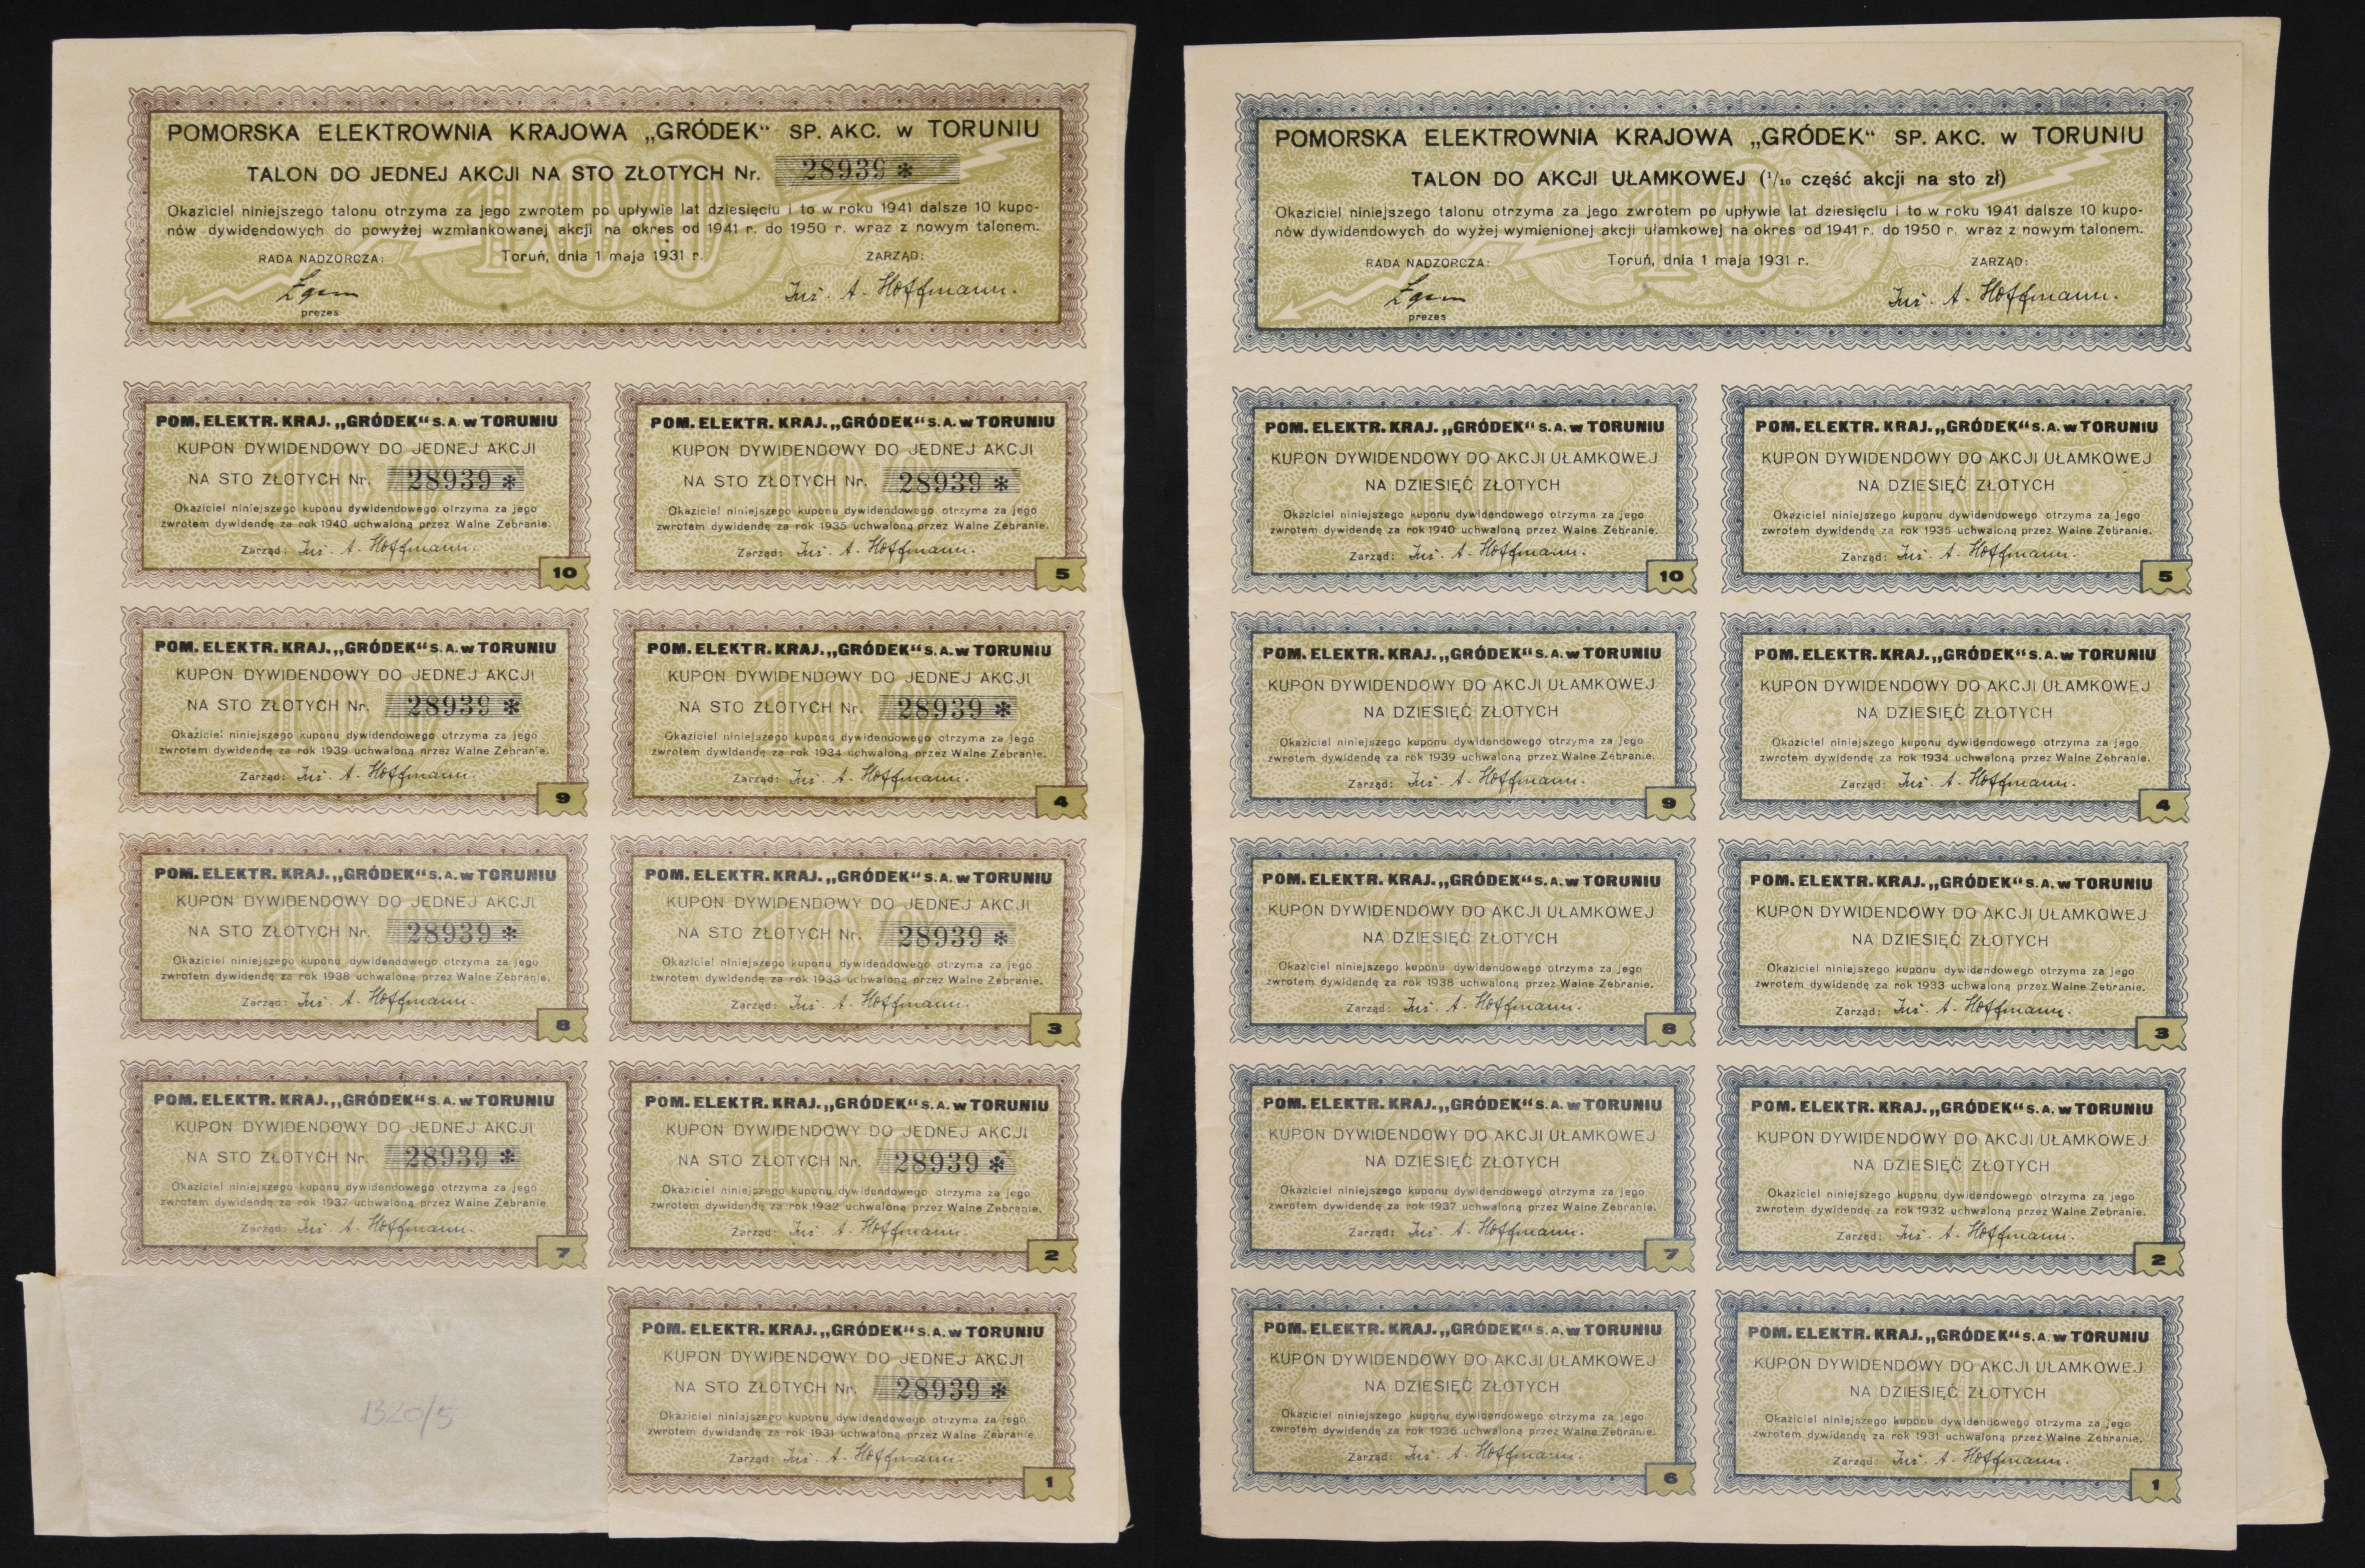 POMORSKA ELEKTROWNIA KRAJOWA „GRÓDEK“ SP. AKC. w TORUNIU
TALON DO JEDNEJ AKCJI NA STO ZŁOTYCH Nr. 28939 *
Okaziciel niniejszego talonu otrzyma za jego zwrotem po upływie lat dziesięciu i to w roku 1941 dalsze 10 kupo-
nów dywidendowych do powyżej wzmiankowanej akcji na okres od 1941 r. do 1950 r. wraz z nowym talonem.
RADA NADZORCZA: Toruń, dnia 1 maja 1931 r. ZARZĄD:
Inż. A. Hoffmann.
prezes
POM. ELEKTR. KRAJ. „GRÓDEK“ S. A. w TORUNIU
KUPON DYWIDENDOWY DO JEDNEJ AKCJI
NA STO ZŁOTYCH Nr. 28939 *
Okaziciel niniejszego kuponu dywidendowego otrzyma za jego
zwrotem dywidendę za rok 1940 uchwaloną przez Walne Zebranie.
Zarząd: Inż. A. Hoffmann.
10
POM. ELEKTR. KRAJ. „GRÓDEK“ S. A. w TORUNIU
KUPON DYWIDENDOWY DO JEDNEJ AKCJI
NA STO ZŁOTYCH Nr. 28939 *
Okaziciel niniejszego kuponu dywidendowego otrzyma za jego
zwrotem dywidendę za rok 1935 uchwaloną przez Walne Zebranie.
Zarząd: Inż. A. Hoffmann.
5
POM. ELEKTR. KRAJ. „GRÓDEK“ S. A. w TORUNIU
KUPON DYWIDENDOWY DO JEDNEJ AKCJI
NA STO ZŁOTYCH Nr. 28939 *
Okaziciel niniejszego kuponu dywidendowego otrzyma za jego
zwrotem dywidendę za rok 1939 uchwaloną przez Walne Zebranie.
Zarząd: Inż. A. Hoffmann.
9
POM. ELEKTR. KRAJ. „GRÓDEK“ S. A. w TORUNIU
KUPON DYWIDENDOWY DO JEDNEJ AKCJI
NA STO ZŁOTYCH Nr. 28939 *
Okaziciel niniejszego kuponu dywidendowego otrzyma za jego
zwrotem dywidendę za rok 1934 uchwaloną przez Walne Zebranie.
Zarząd: Inż. A. Hoffmann.
4
POM. ELEKTR. KRAJ. „GRÓDEK“ S. A. w TORUNIU
KUPON DYWIDENDOWY DO JEDNEJ AKCJI
NA STO ZŁOTYCH Nr. 28939 *
Okaziciel niniejszego kuponu dywidendowego otrzyma za jego
zwrotem dywidendę za rok 1938 uchwaloną przez Walne Zebranie.
Zarząd: Inż. A. Hoffmann.
8
POM. ELEKTR. KRAJ. „GRÓDEK“ S. A. w TORUNIU
KUPON DYWIDENDOWY DO JEDNEJ AKCJI
NA STO ZŁOTYCH Nr. 28939 *
Okaziciel niniejszego kuponu dywidendowego otrzyma za jego
zwrotem dywidendę za rok 1933 uchwaloną przez Walne Zebranie.
Zarząd: Inż. A. Hoffmann.
3
POM. ELEKTR. KRAJ. „GRÓDEK“ S. A. w TORUNIU
KUPON DYWIDENDOWY DO JEDNEJ AKCJI
NA STO ZŁOTYCH Nr. 28939 *
Okaziciel niniejszego kuponu dywidendowego otrzyma za jego
zwrotem dywidendę za rok 1937 uchwaloną przez Walne Zebranie
Zarząd: Inż. A. Hoffmann.
7
POM. ELEKTR. KRAJ. „GRÓDEK“ S. A. w TORUNIU
KUPON DYWIDENDOWY DO JEDNEJ AKCJI
NA STO ZŁOTYCH Nr. 28939 *
Okaziciel niniejszego kuponu dywidendowego otrzyma za jego
zwrotem dywidendę za rok 1932 uchwaloną przez Walne Zebranie.
Zarząd: Inż. A. Hoffmann.
2
1320/5
POM. ELEKTR. KRAJ. „GRÓDEK“ S. A. w TORUNIU
KUPON DYWIDENDOWY DO JEDNEJ AKCJI
NA STO ZŁOTYCH Nr. 28939 *
Okaziciel niniejszego kuponu dywidendowego otrzyma za jego
zwrotem dywidendę za rok 1931 uchwaloną przez Walne Zebranie
Zarząd: Inż. A. Hoffmann.
1
POMORSKA ELEKTROWNIA KRAJOWA „GRÓDEK“ SP. AKC. w TORUNIU
TALON DO AKCJI UŁAMKOWEJ (1/10 część akcji na sto zł)
Okaziciel niniejszego talonu otrzyma za jego zwrotem po upływie lat dziesięciu i to w roku 1941 dalsze 10 kupo-
nów dywidendowych do wyżej wymienionej akcji ułamkowej na okres od 1941 r. do 1950 r. wraz z nowym talonem.
RADA NADZORCZA: Toruń, dnia 1 maja 1931 r. ZARZĄD:
Inż. A. Hoffmann.
prezes
POM. ELEKTR. KRAJ. „GRÓDEK“ S. A. w TORUNIU
KUPON DYWIDENDOWY DO AKCJI UŁAMKOWEJ
NA DZIESIĘĆ ZŁOTYCH
Okaziciel niniejszego kuponu dywidendowego otrzyma za jego
zwrotem dywidendę za rok 1940 uchwaloną przez Walne Zebranie.
Zarząd: Inż. A. Hoffmann.
10
POM. ELEKTR. KRAJ. „GRÓDEK“ S. A. w TORUNIU
KUPON DYWIDENDOWY DO AKCJI UŁAMKOWEJ
NA DZIESIĘĆ ZŁOTYCH
Okaziciel niniejszego kuponu dywidendowego otrzyma za jego
zwrotem dywidendę za rok 1935 uchwaloną przez Walne Zebranie.
Zarząd: Inż. A. Hoffmann.
5
POM. ELEKTR. KRAJ. „GRÓDEK“ S. A. w TORUNIU
KUPON DYWIDENDOWY DO AKCJI UŁAMKOWEJ
NA DZIESIĘĆ ZŁOTYCH
Okaziciel niniejszego kuponu dywidendowego otrzyma za jego
zwrotem dywidendę za rok 1939 uchwaloną przez Walne Zebranie.
Zarząd: Inż. A. Hoffmann.
9
POM. ELEKTR. KRAJ. „GRÓDEK“ S. A. w TORUNIU
KUPON DYWIDENDOWY DO AKCJI UŁAMKOWEJ
NA DZIESIĘĆ ZŁOTYCH
Okaziciel niniejszego kuponu dywidendowego otrzyma za jego
zwrotem dywidendę za rok 1934 uchwaloną przez Walne Zebranie.
Zarząd: Inż. A. Hoffmann.
4
POM. ELEKTR. KRAJ. „GRÓDEK“ S. A. w TORUNIU
KUPON DYWIDENDOWY DO AKCJI UŁAMKOWEJ
NA DZIESIĘĆ ZŁOTYCH
Okaziciel niniejszego kuponu dywidendowego otrzyma za jego
zwrotem dywidendę za rok 1938 uchwaloną przez Walne Zebranie.
Zarząd: Inż. A. Hoffmann.
8
POM. ELEKTR. KRAJ. „GRÓDEK“ S. A. w TORUNIU
KUPON DYWIDENDOWY DO AKCJI UŁAMKOWEJ
NA DZIESIĘĆ ZŁOTYCH
Okaziciel niniejszego kuponu dywidendowego otrzyma za jego
zwrotem dywidendę za rok 1933 uchwaloną przez Walne Zebranie.
Zarząd: Inż. A. Hoffmann.
3
POM. ELEKTR. KRAJ. „GRÓDEK“ S. A. w TORUNIU
KUPON DYWIDENDOWY DO AKCJI UŁAMKOWEJ
NA DZIESIĘĆ ZŁOTYCH
Okaziciel niniejszego kuponu dywidendowego otrzyma za jego
zwrotem dywidendę za rok 1937 uchwaloną przez Walne Zebranie.
Zarząd: Inż. A. Hoffmann.
7
POM. ELEKTR. KRAJ. „GRÓDEK“ S. A. w TORUNIU
KUPON DYWIDENDOWY DO AKCJI UŁAMKOWEJ
NA DZIESIĘĆ ZŁOTYCH
Okaziciel niniejszego kuponu dywidendowego otrzyma za jego
zwrotem dywidendę za rok 1932 uchwaloną przez Walne Zebranie.
Zarząd: Inż. A. Hoffmann.
2
POM. ELEKTR. KRAJ. „GRÓDEK“ S. A. w TORUNIU
KUPON DYWIDENDOWY DO AKCJI UŁAMKOWEJ
NA DZIESIĘĆ ZŁOTYCH
Okaziciel niniejszego kuponu dywidendowego otrzyma za jego
zwrotem dywidendę za rok 1936 uchwaloną przez Walne Zebranie.
Zarząd: Inż. A. Hoffmann.
6
POM. ELEKTR. KRAJ. „GRÓDEK“ S. A. w TORUNIU
KUPON DYWIDENDOWY DO AKCJI UŁAMKOWEJ
NA DZIESIĘĆ ZŁOTYCH
Okaziciel niniejszego kuponu dywidendowego otrzyma za jego
zwrotem dywidendę za rok 1931 uchwaloną przez Walne Zebranie.
Zarząd: Inż. A. Hoffmann.
1